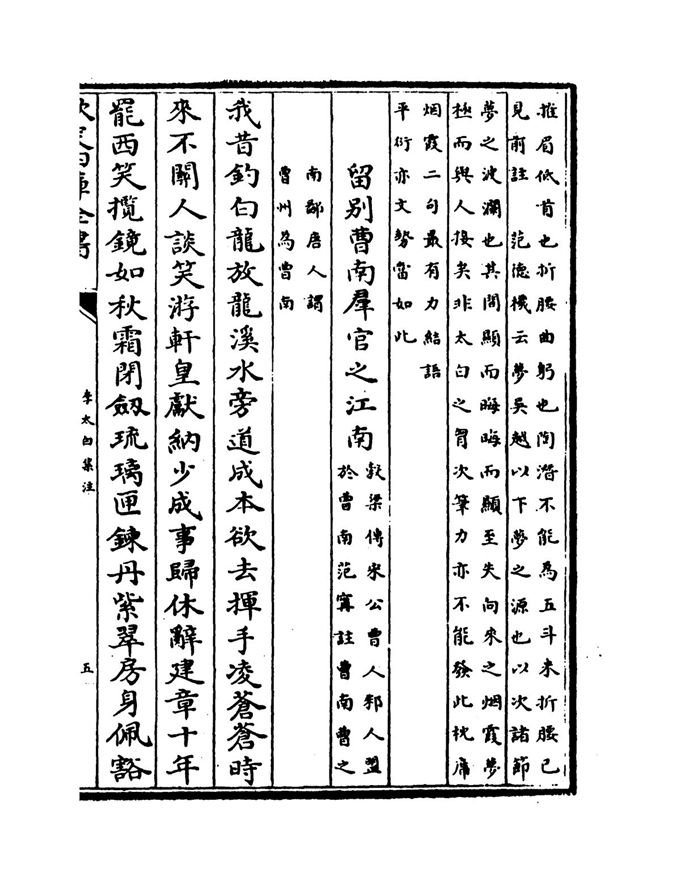 摧眉低首也折腰曲躬也陶潛不能為五斗米折腰已
見前註　范徳機云夢吳越以下夢之源也以次諸節
夢之波瀾也其間顯而晦晦而顯至失向來之烟霞夢
極而與人接矣非太白之胷次筆力亦不能發此枕席
烟霞二句最有力結語
平衍亦文勢當如此
留别曹南羣官之江南
穀梁傳宋公曹人邾人盟
於曹南范寗註曹南曹之
南鄙唐人謂
曹州為曹南
我昔釣白龍放龍溪水旁道成本欲去揮手凌蒼蒼時
來不關人談笑游軒皇獻納少成事歸休辭建章十年
罷西笑攬鏡如秋霜閉劒琉璃匣鍊丹紫翠房身佩豁
欽定四庫全書
李太白集注
五